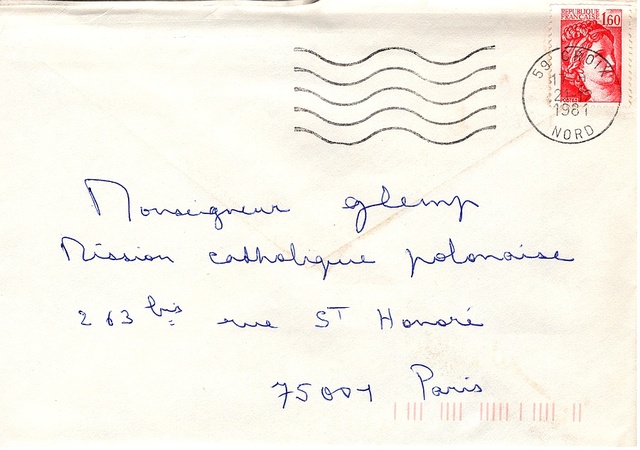 REPUBLIQUE
FRANCAISE
1,60
59 CROIX
1981
NORD
Monseigneur glemp
Mission catholique polonaise
263 bis rue ST Honoré
75001 Paris